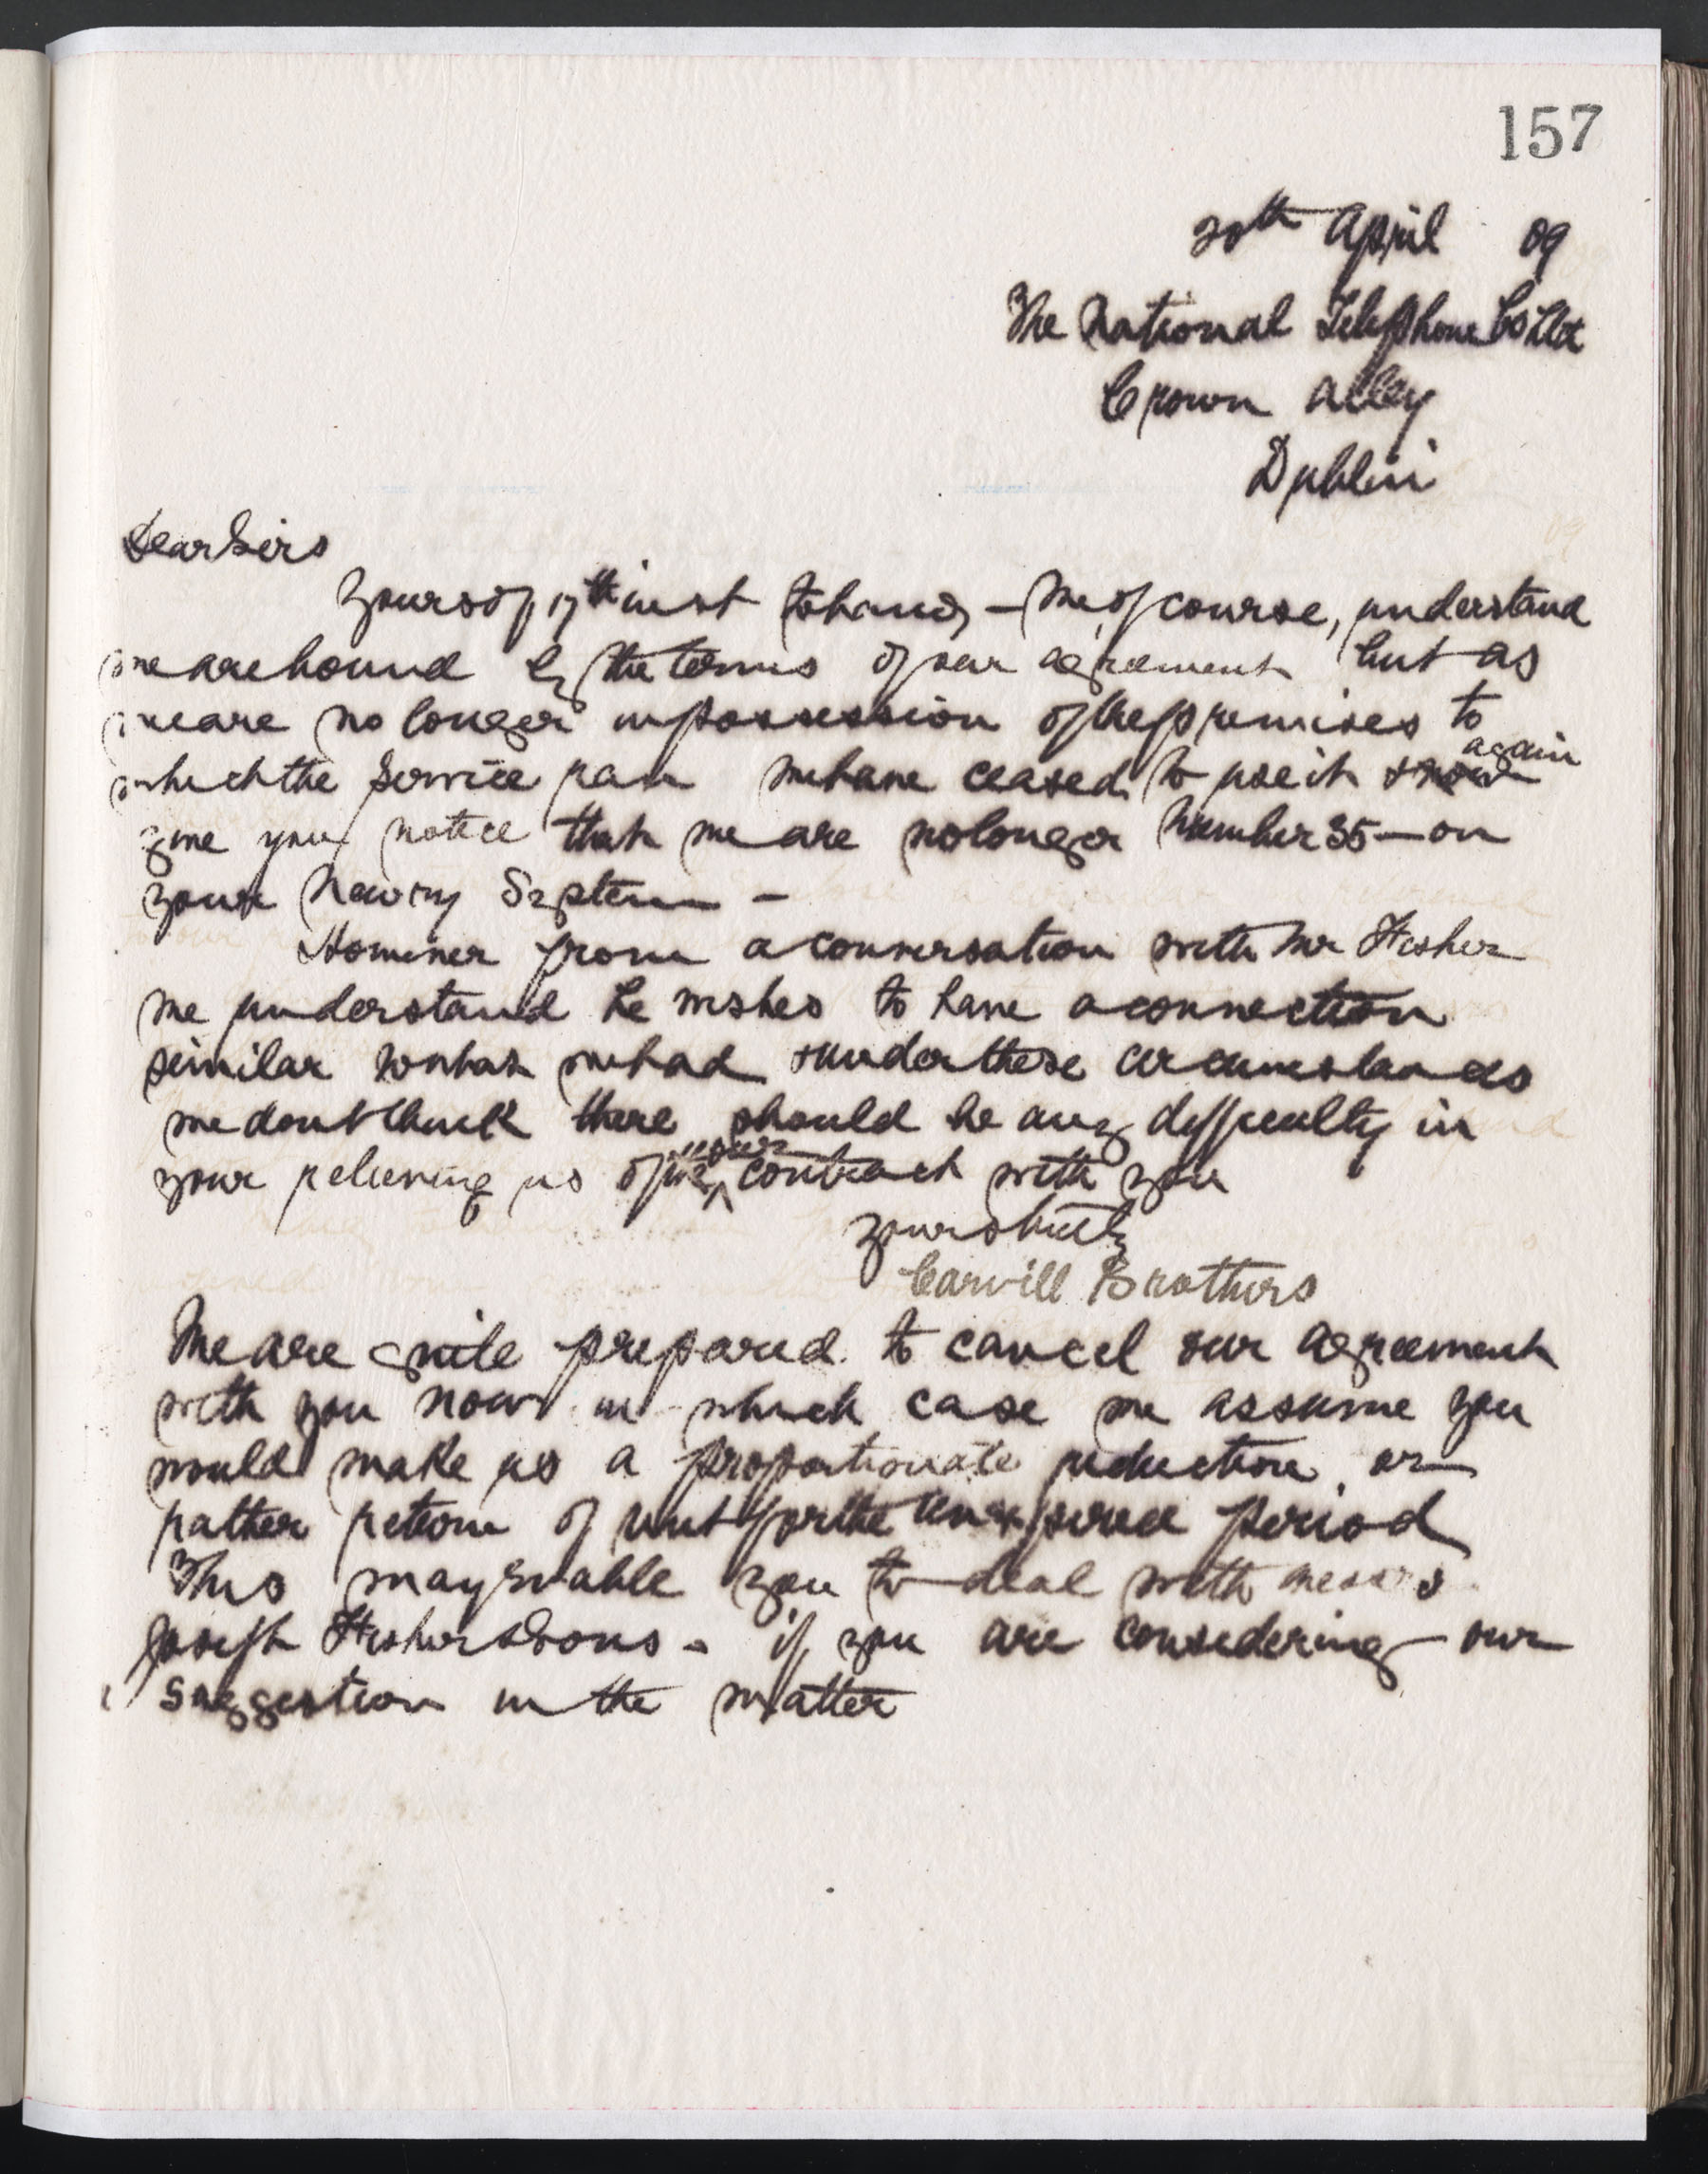 157
20th April 09
The National Telephone Co Ltd
Crown Alley
Dublin
Dear Sirs
Yours of 17th inst to hand, - We, of course, understand
we are bound by the terms of our agreement but as
we are no longer in possession of the premises to
which the service ran we have ceased to use it & now again
give you notice that we are no longer Number 35 - on
your Newry System -
However from a conversation with Mr Fisher
we understand he wishes to have a connection
similar to what we had & under these circumstances
we dont think there should be any difficulty in
your relieving us of the contract with you
Yours truly
Carvill Brothers
We are quite prepared to cancel our agreement
with you now in which case we assume you
would make us a proportionate reduction or
rather return of rent for the unexpired period
This may enable you to deal with Messrs
Joseph Fisher & Sons - if you are considering our
suggestion in the matter